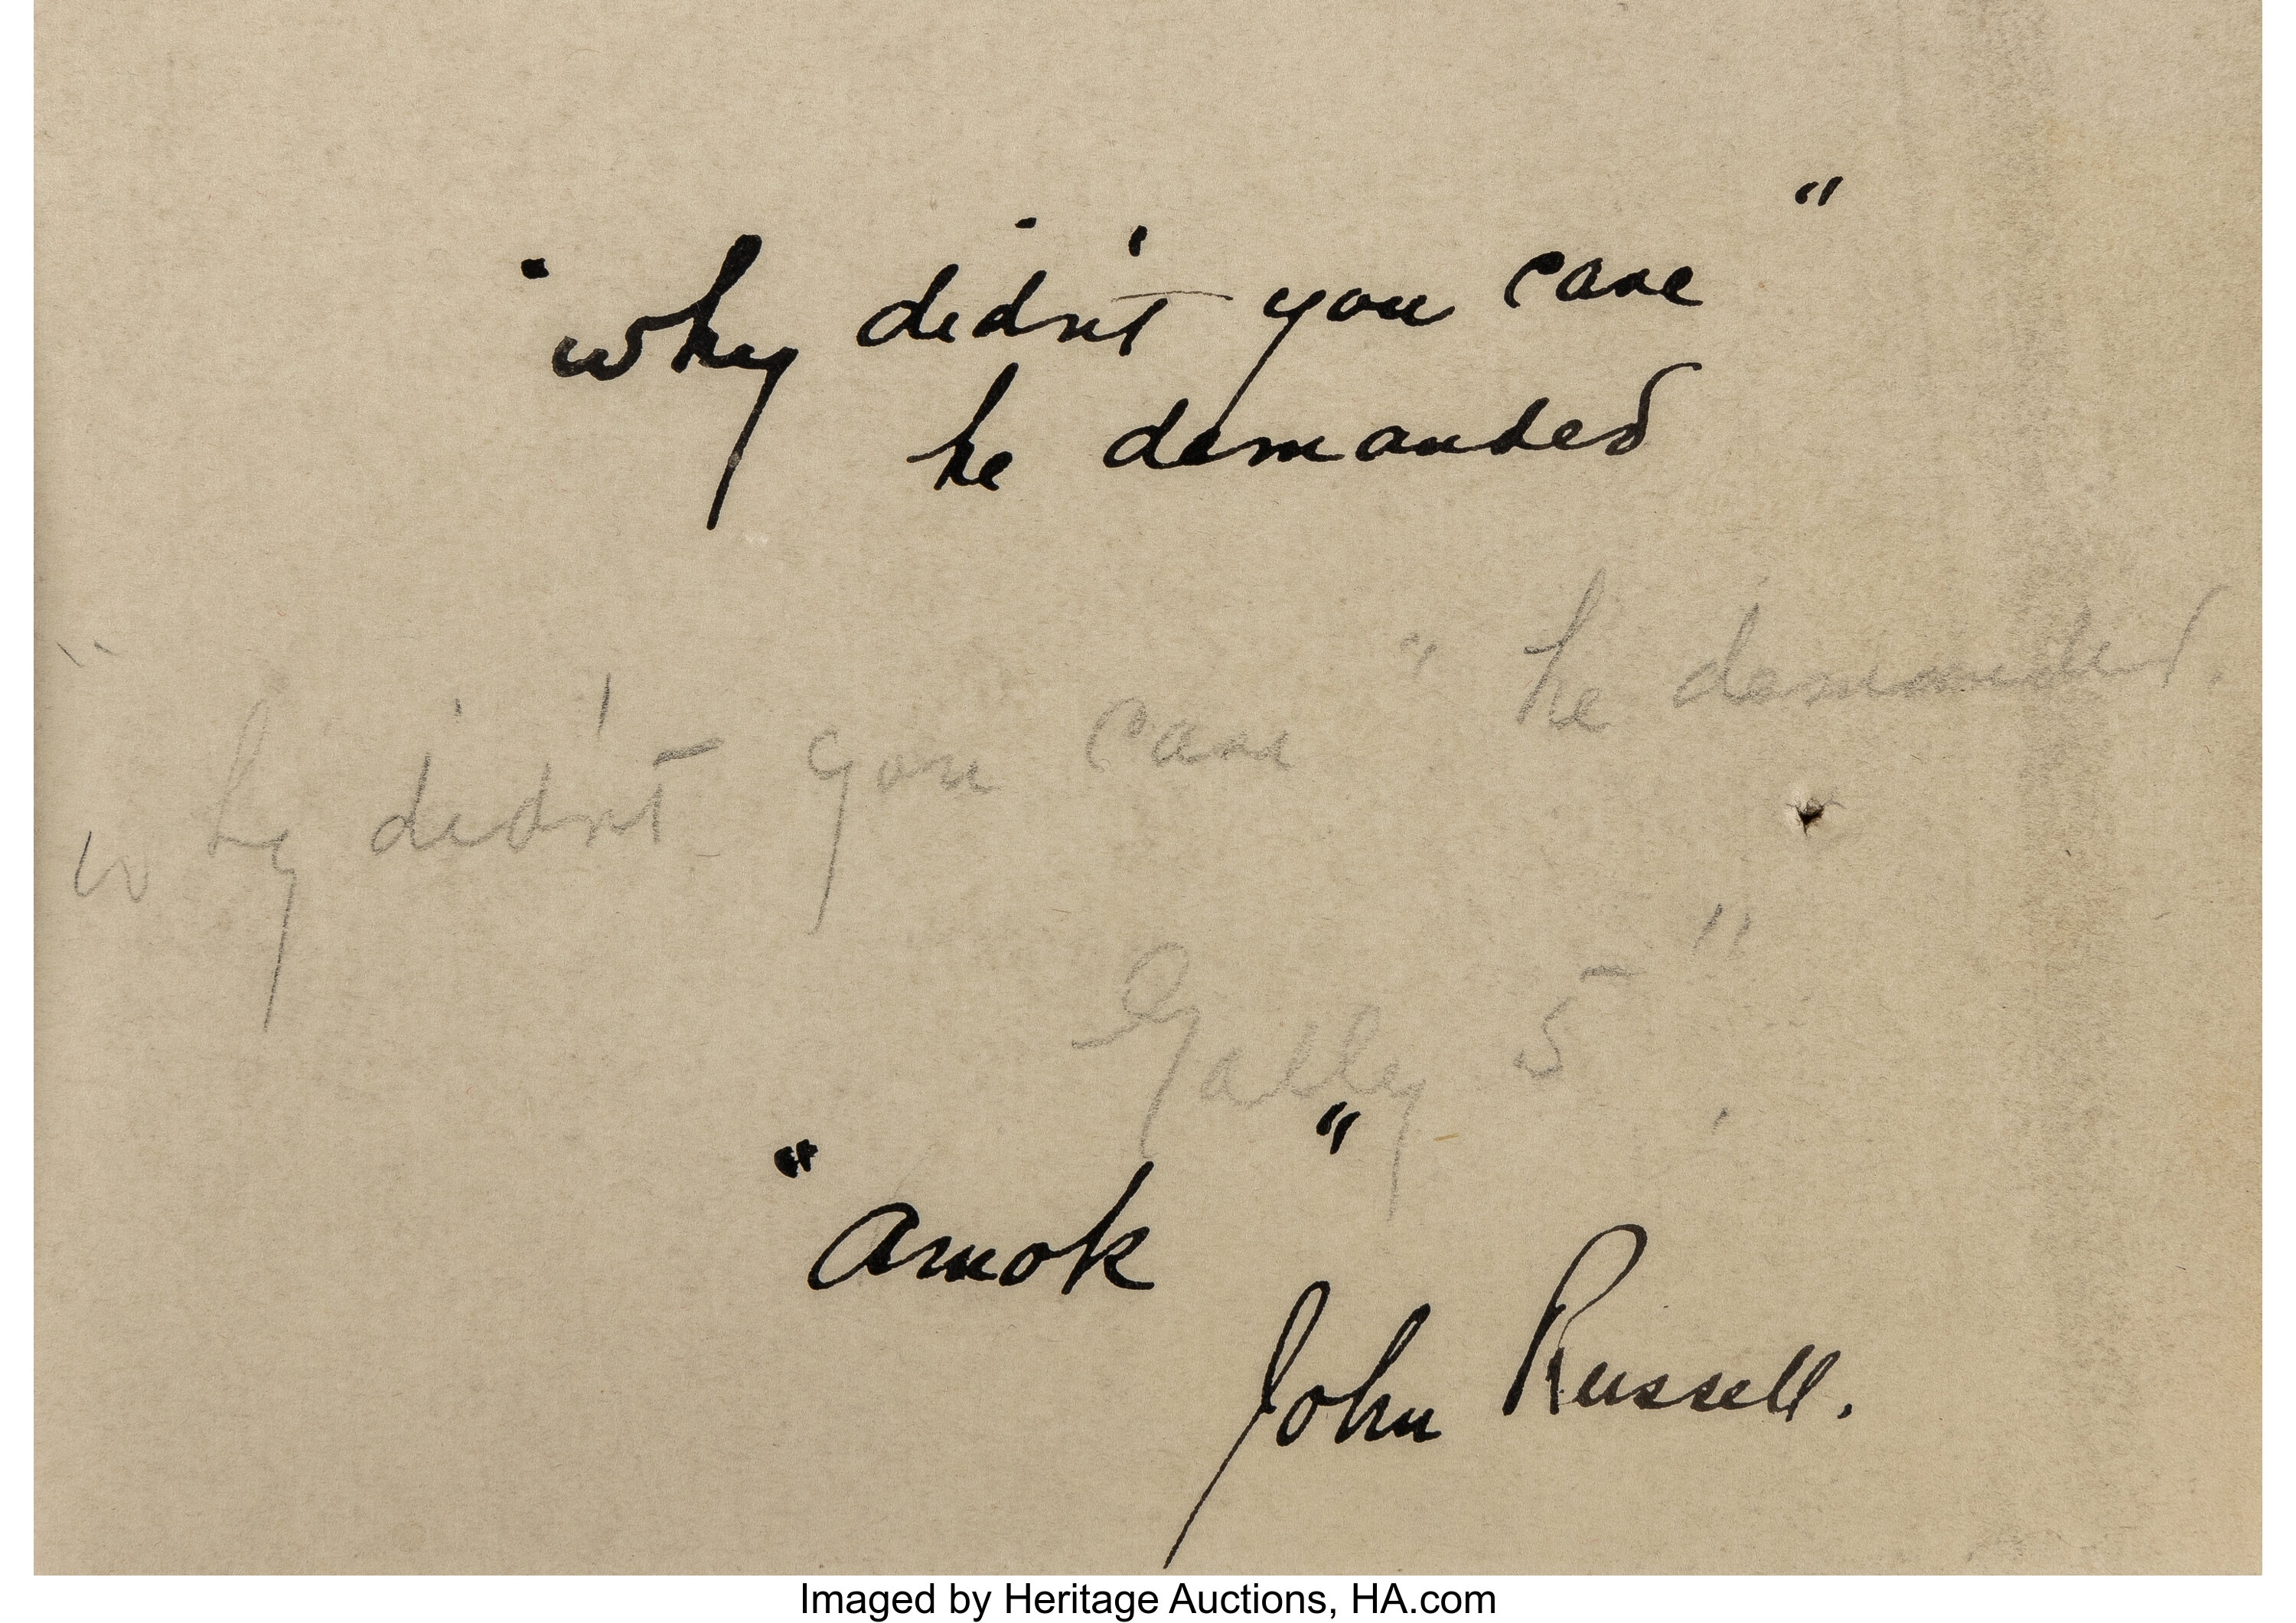 "why didn't you care"
he demanded
"why didn't you care" he demanded.
Galley 5"
"Amok"
John Russell.
Imaged by Heritage Auctions, HA.com